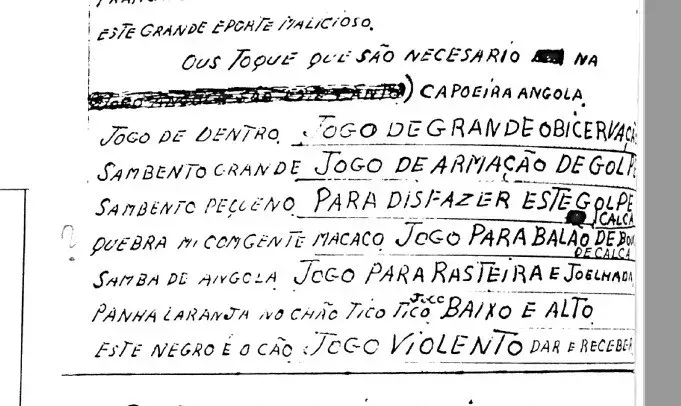 ESTE GRANDE EPORTE MALICIOSO.
OUS TOQUE QUE SÃO NECESARIO NA
) CAPOEIRA ANGOLA.
JOGO DE DENTRO. JOGO DE GRANDE OBICERVAÇÃ
SAMBENTO GRANDE JOGO DE ARMAÇÃO DE GOLPE
SAMBENTO PEQUENO PARA DISFAZER ESTE GOLPE
CALCA
QUEBRA MI COMGENTE MACACO JOGO PARA BALÃO DE BOCA
DE CALCA
SAMBA DE ANGOLA JOGO PARA RASTEIRA E JOELHADA
PANHA LARANJA NO CHÃO TICO TICO JOGO BAIXO E ALTO
ESTE NEGRO E O CÃO. JOGO VIOLENTO DAR E RECEBER